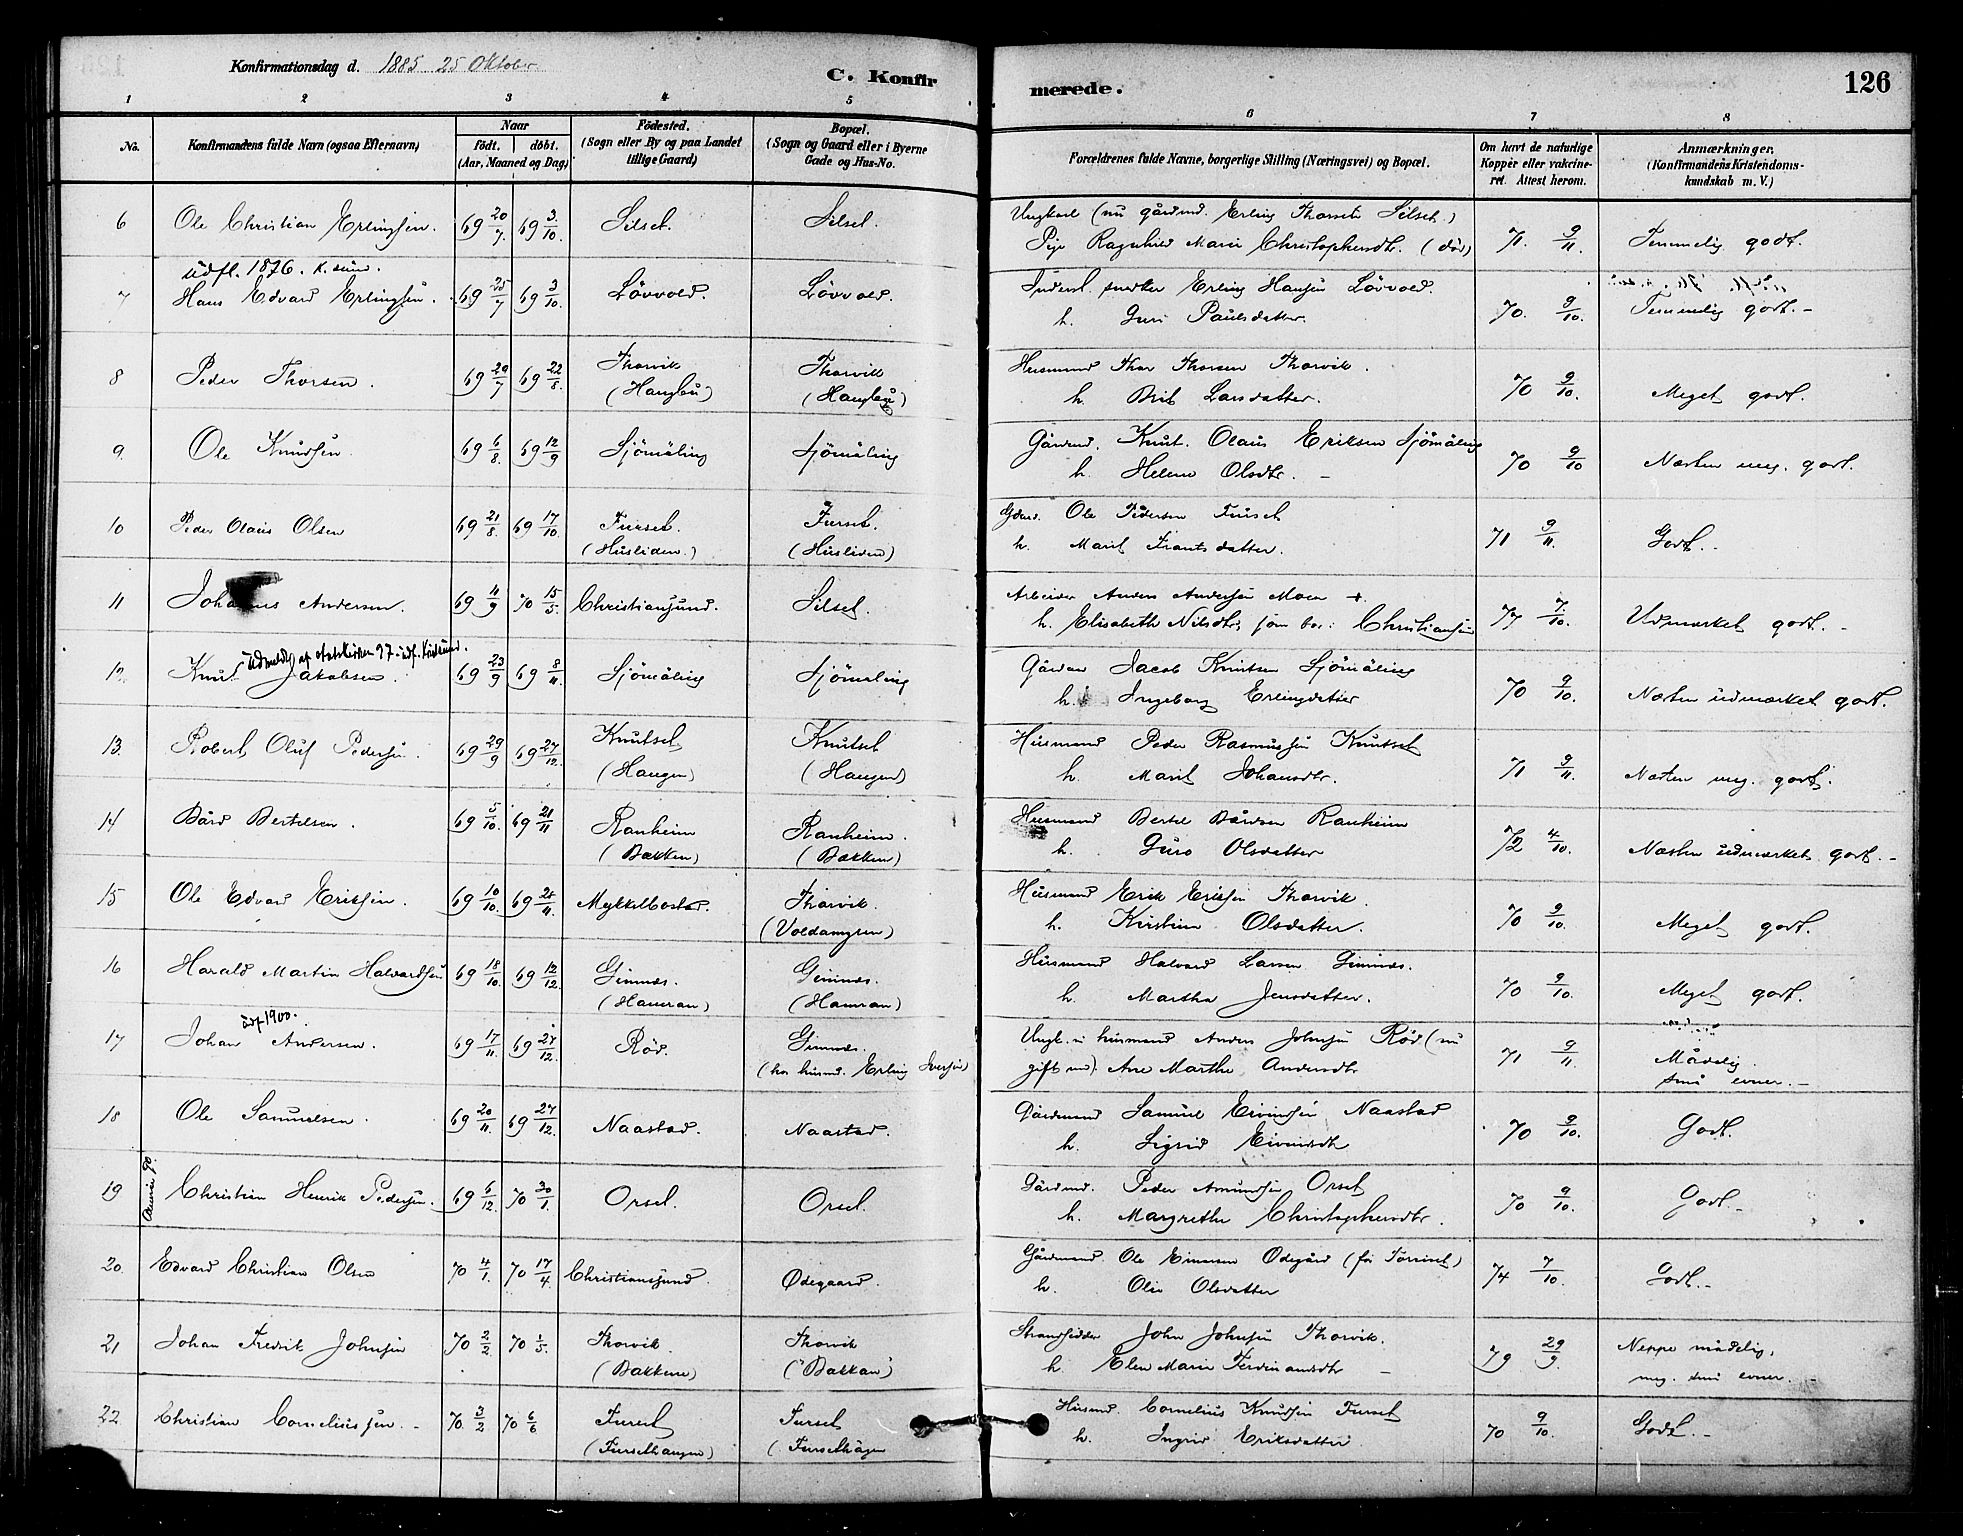 Konfirmationsdag d. 1885 25 Oktober
C. Konfirmerede.
126
1 2 3 4 5 6 7 8
No.
Konfirmandens fulde Navn (ogsaa Efternavn)
Naar
født. døbt.
(Aar, Maaned og Dag)
Fødested.
(Sogn eller By og paa Landet
tillige Gaard)
Bopæl.
(Sogn og Gaard eller i Byerne
Gade og Hus-No.
Forældrenes fulde Navne, borgerlige Stilling (Næringsvei) og Bopæl.
Om havt de naturlige
Kopper eller vakcine-
ret. Attest herom.
Anmærkninger.
(Konfirmandens Kristendoms-
kundskab m. V.)
6 Ole Christian Erlingsen. 69 20/7 69 3/10. Silset. Silset. Ungkarl (nu gårdmd. Erling Thorsen Silset.)
Pige Ragnhild Marie Christophersdtr. (død) 71 9/11. Temmelig godt.
udfl. 1876.
7 Hans Edvard Erlingsen. 69 25/7 69 3/10. Løvvold. Løvvold. Inderst. snedker Erling Hansen Løvvold.
h. Guri Paulsdatter. 70. 9/10. Temmelig godt. -
8 Peder Thorsen. 69 29/7 69 22/8. Thorvik (Hangbu) Thorvik (Hangbu) Husmand Thor Thorsen Thorvik.
h. Brit Larsdatter. 70 9/10. Meget godt.
9. Ole Knudsen. 69 6/8. 69 12/9 Sjömäling Sjömäling Gårdmd. Knut Olaus Eriksen Sjömäling
h. Helene Olsdtr. - 70 9/10 Næsten meg. godt.
10 Peder Olaus Olsen 69 21/8. 69 17/10. Furset. (Husliden.) Furset. (Husliden) Gdmd. Ole Pedersen Furset
h. Marit Frantsdatter. 71 9/11. Godt. -
11 Johannes Andersen. 69 11/9 70 15/5. Christiansund. Silset. Arbeider Anders Andersen Moen +.
h. Elisabeth Nilsdtr, som bor: Christiansund 77 7/10. Udmærket godt. -
Udmeldt af statskirken 97
12. Knut Jakobsen. 69 23/9 69 8/11. Sjömäling Sjömaling Gårdm Jacob Knutsen Sjömäling
h. Ingeborg Erlingsdatter 70 9/10. Næsten udmærket godt.
13. Robert Oluf Pedersen. 69 29/9 69 27/12. Knutset (Haugen) Knutset (Haugen) Husmand Peder Rasmussen Knutset
h. Marit Johansdtr. 71 9/11. Næsten meg. godt.
14 Bård Bertelsen. 69 5/10. 69 21/11 Ranheim (Bakken) Ranheim. (Bakken) Husmand Bertel Bårdsen Ranheim
h. Guro Olsdatter 72 4/10. Næsten udmærket godt. -
15 Ole Edvard Eriksen. 69 10/10. 69 24/11. Mykkelbostad. Thorvik. (Voldamyren) Husmand Erik Eriksen Thorvik.
h. Kirstine Olsdatter. 70 9/10. Meget godt.
16 Harald Martin Halvardsen 69 18/10. 69 12/12. Gimnæs. (Hamran) Gimnæs. (Hamran) Husmand Halvard Larsen Gimnæs.
h. Martha Jensdatter. 70 9/10. Meget godt.
udf 1900.
17 Johan Andersen. 69 17/11. 69 27/12. Rød. Gimnæs. (hos husmd. Erling Iversen) Ungk. husmand Anders Johnsen Rød (nu
gift md). Ane Marthe Andersdtr 71 9/11. Mådelig. små evner. -
18 Ole Samuelsen. 69 20/11. 69 27/12. Naastad. Naastad. Gårdmand Samuel Eivindsen Naastad
h. Sigrid Eivindsdtr 70 9/10. Godt.
19 Christian Henrik Pedersen. 69 6/12. 70 30/1. Orset. Orset. Gårdmd. Peder Amundsen Orset
h. Margrethe Christophersdtr. 70 9/10. Godt. -
20. Edvard Christian Olsen 70 4/1. 70 17/4. Christianssund. Ødegaard. Gårdmand. Ole Einarsen Ødegård
h. Olia Olsdatter 74 7/10. Godt. -
21 Johan Fredrik Johnsen 70 2/2. 70 1/5. Thorvik. (Bakken) Thorvik (Bakkan) Strandsidder John Johnsen Thorvik.
h. Elen Marie Ferdinansdtr 79 29/9. Neppe mådelig, meg. små evner. -
22. Christian Corneliussen. - 70. 3/2 70 6/6 Furset (Fursethaugen) Furset (Fursethagen Husmd. Cornelius Knudsen Furset
h. Ingrid Eriksdatter 70 9/10. Godt. -